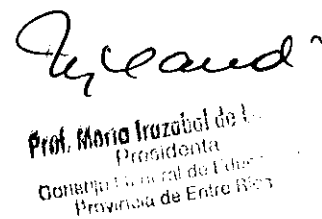 Prof. María Iruzubal de L
Presidenta
Consejo General de Educ
Provincia de Entre Ríos